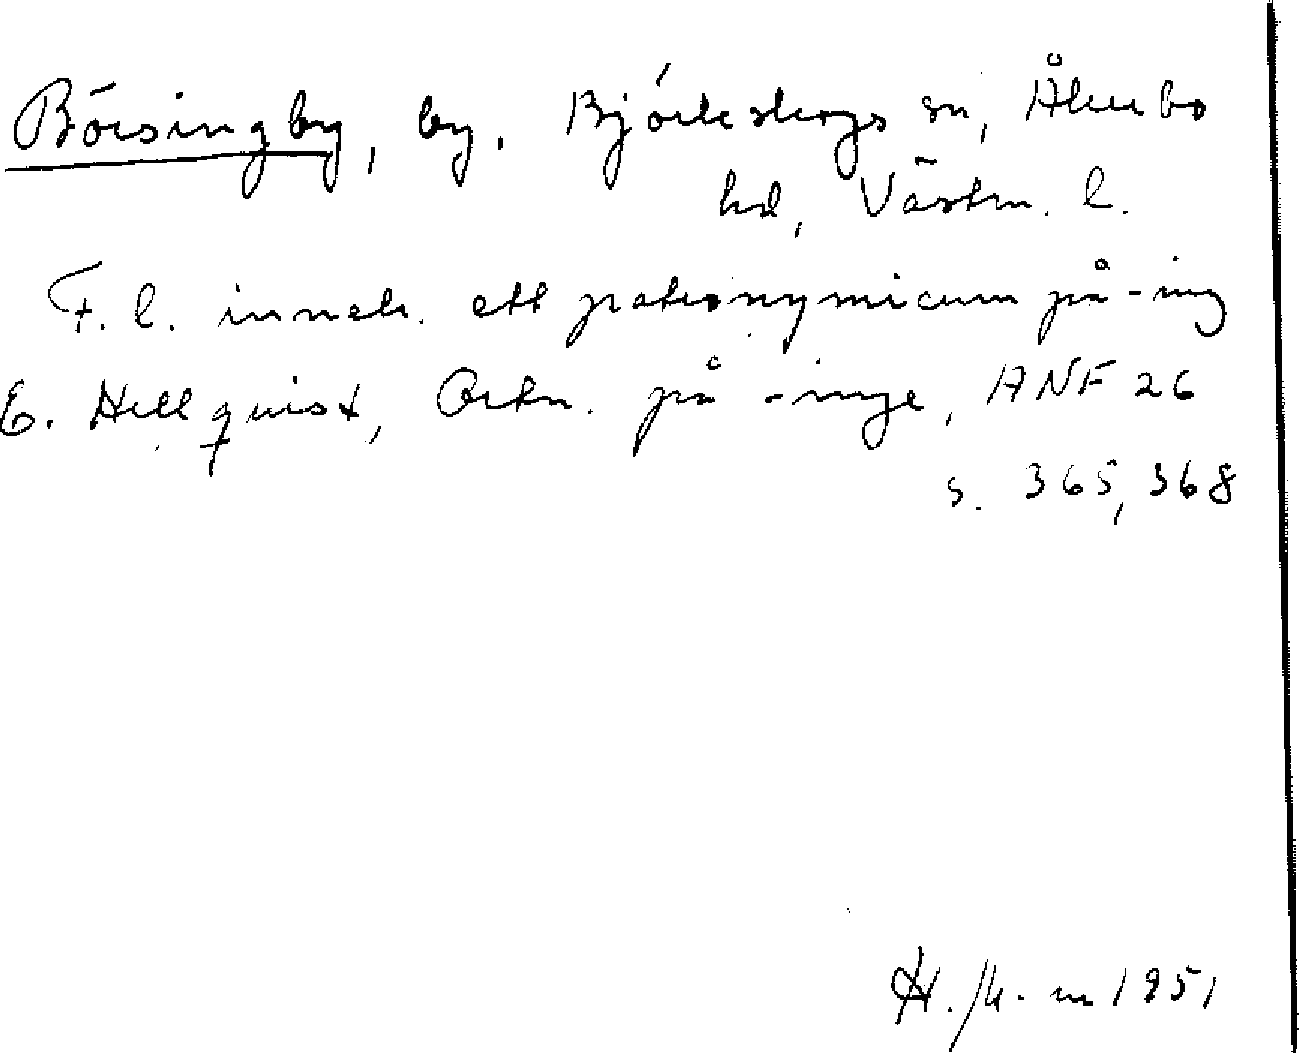 Börsingby, by. Björkskogs sn, Åkerbo
hd, Västm. l.
F. l. inneh. ett patronymicum på -ing
E. Hellquist, Ortn. på -inge, ANF 26
s. 365, 368
1951